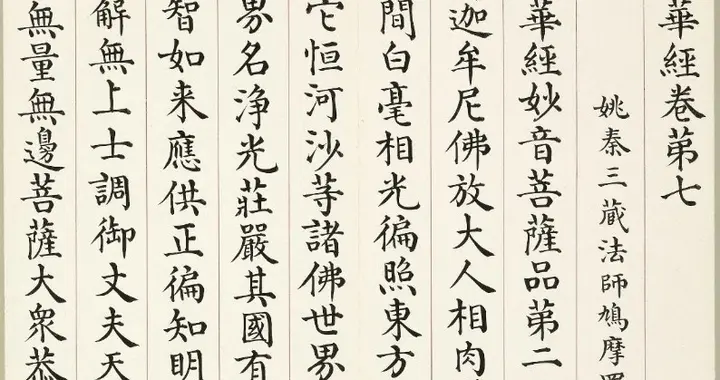 華經卷第七
姚秦三藏法師鳩摩
華經妙音菩薩品第二
迦牟尼佛放大人相肉
間白毫相光徧照東方
它恒河沙等諸佛世界
界名淨光莊嚴其國有
智如来應供正徧知明
解無上士調御丈夫天
無量無邊菩薩大衆恭